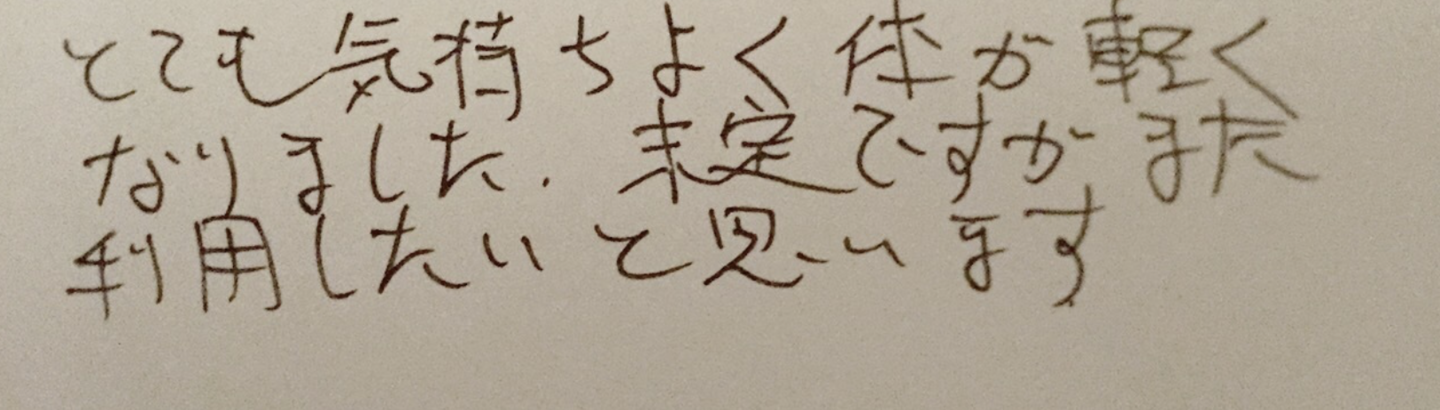 とても気持ちよく体が軽く
なりました. 未定ですがまた
利用したいと思います